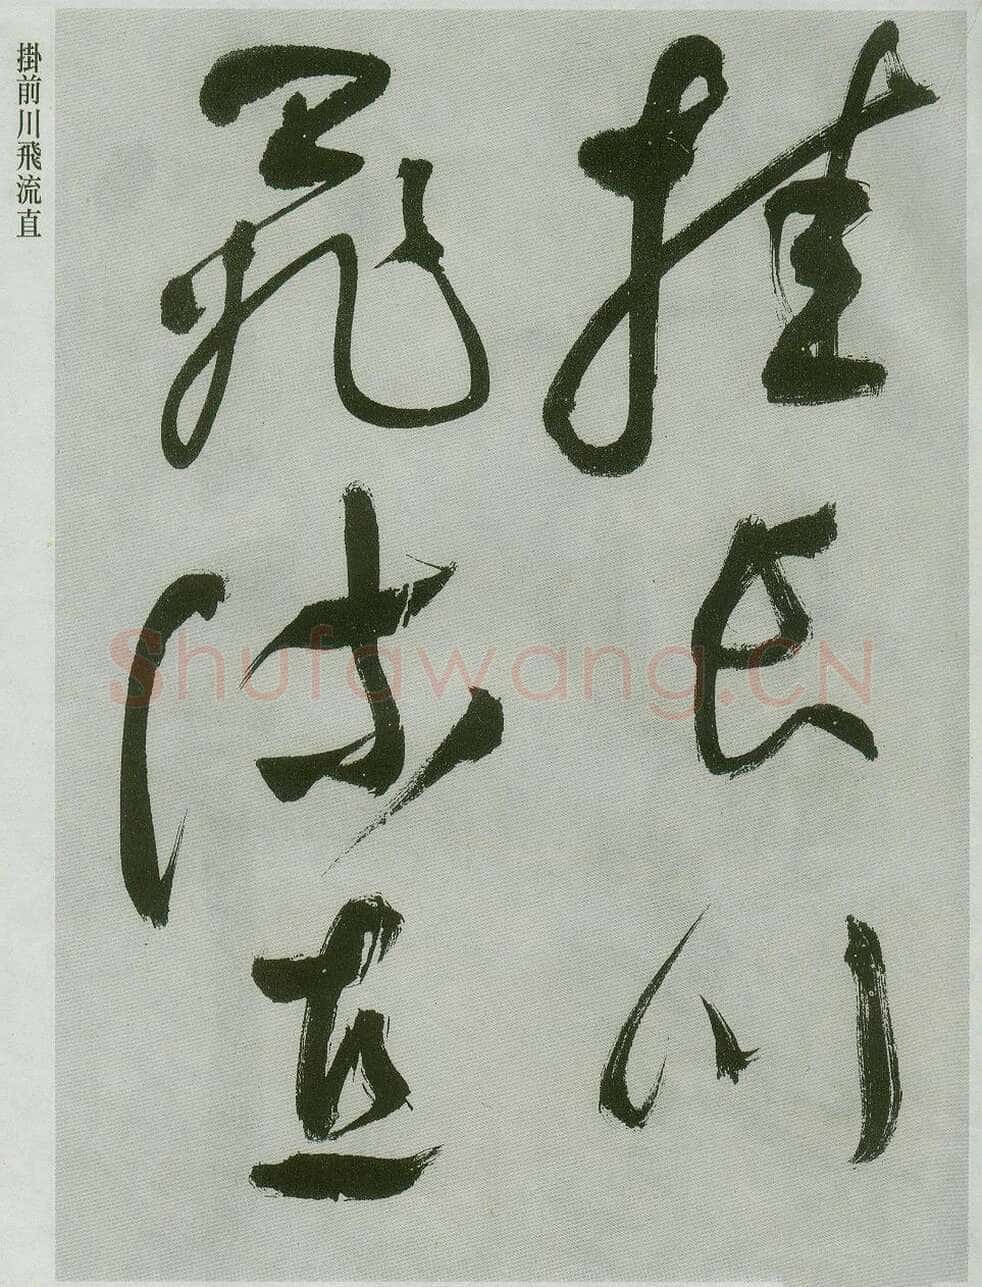 挂长川
飛流直
掛前川飛流直
Shufawang.CN